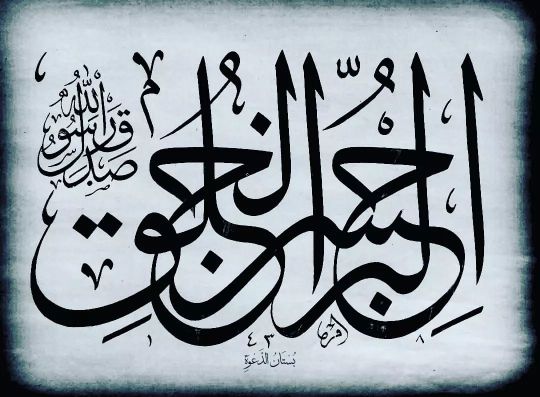 البر حسن الخلق
صدق رسول الله
١٤٣٨
بُسْتَانُ الدَّعْوَةِ